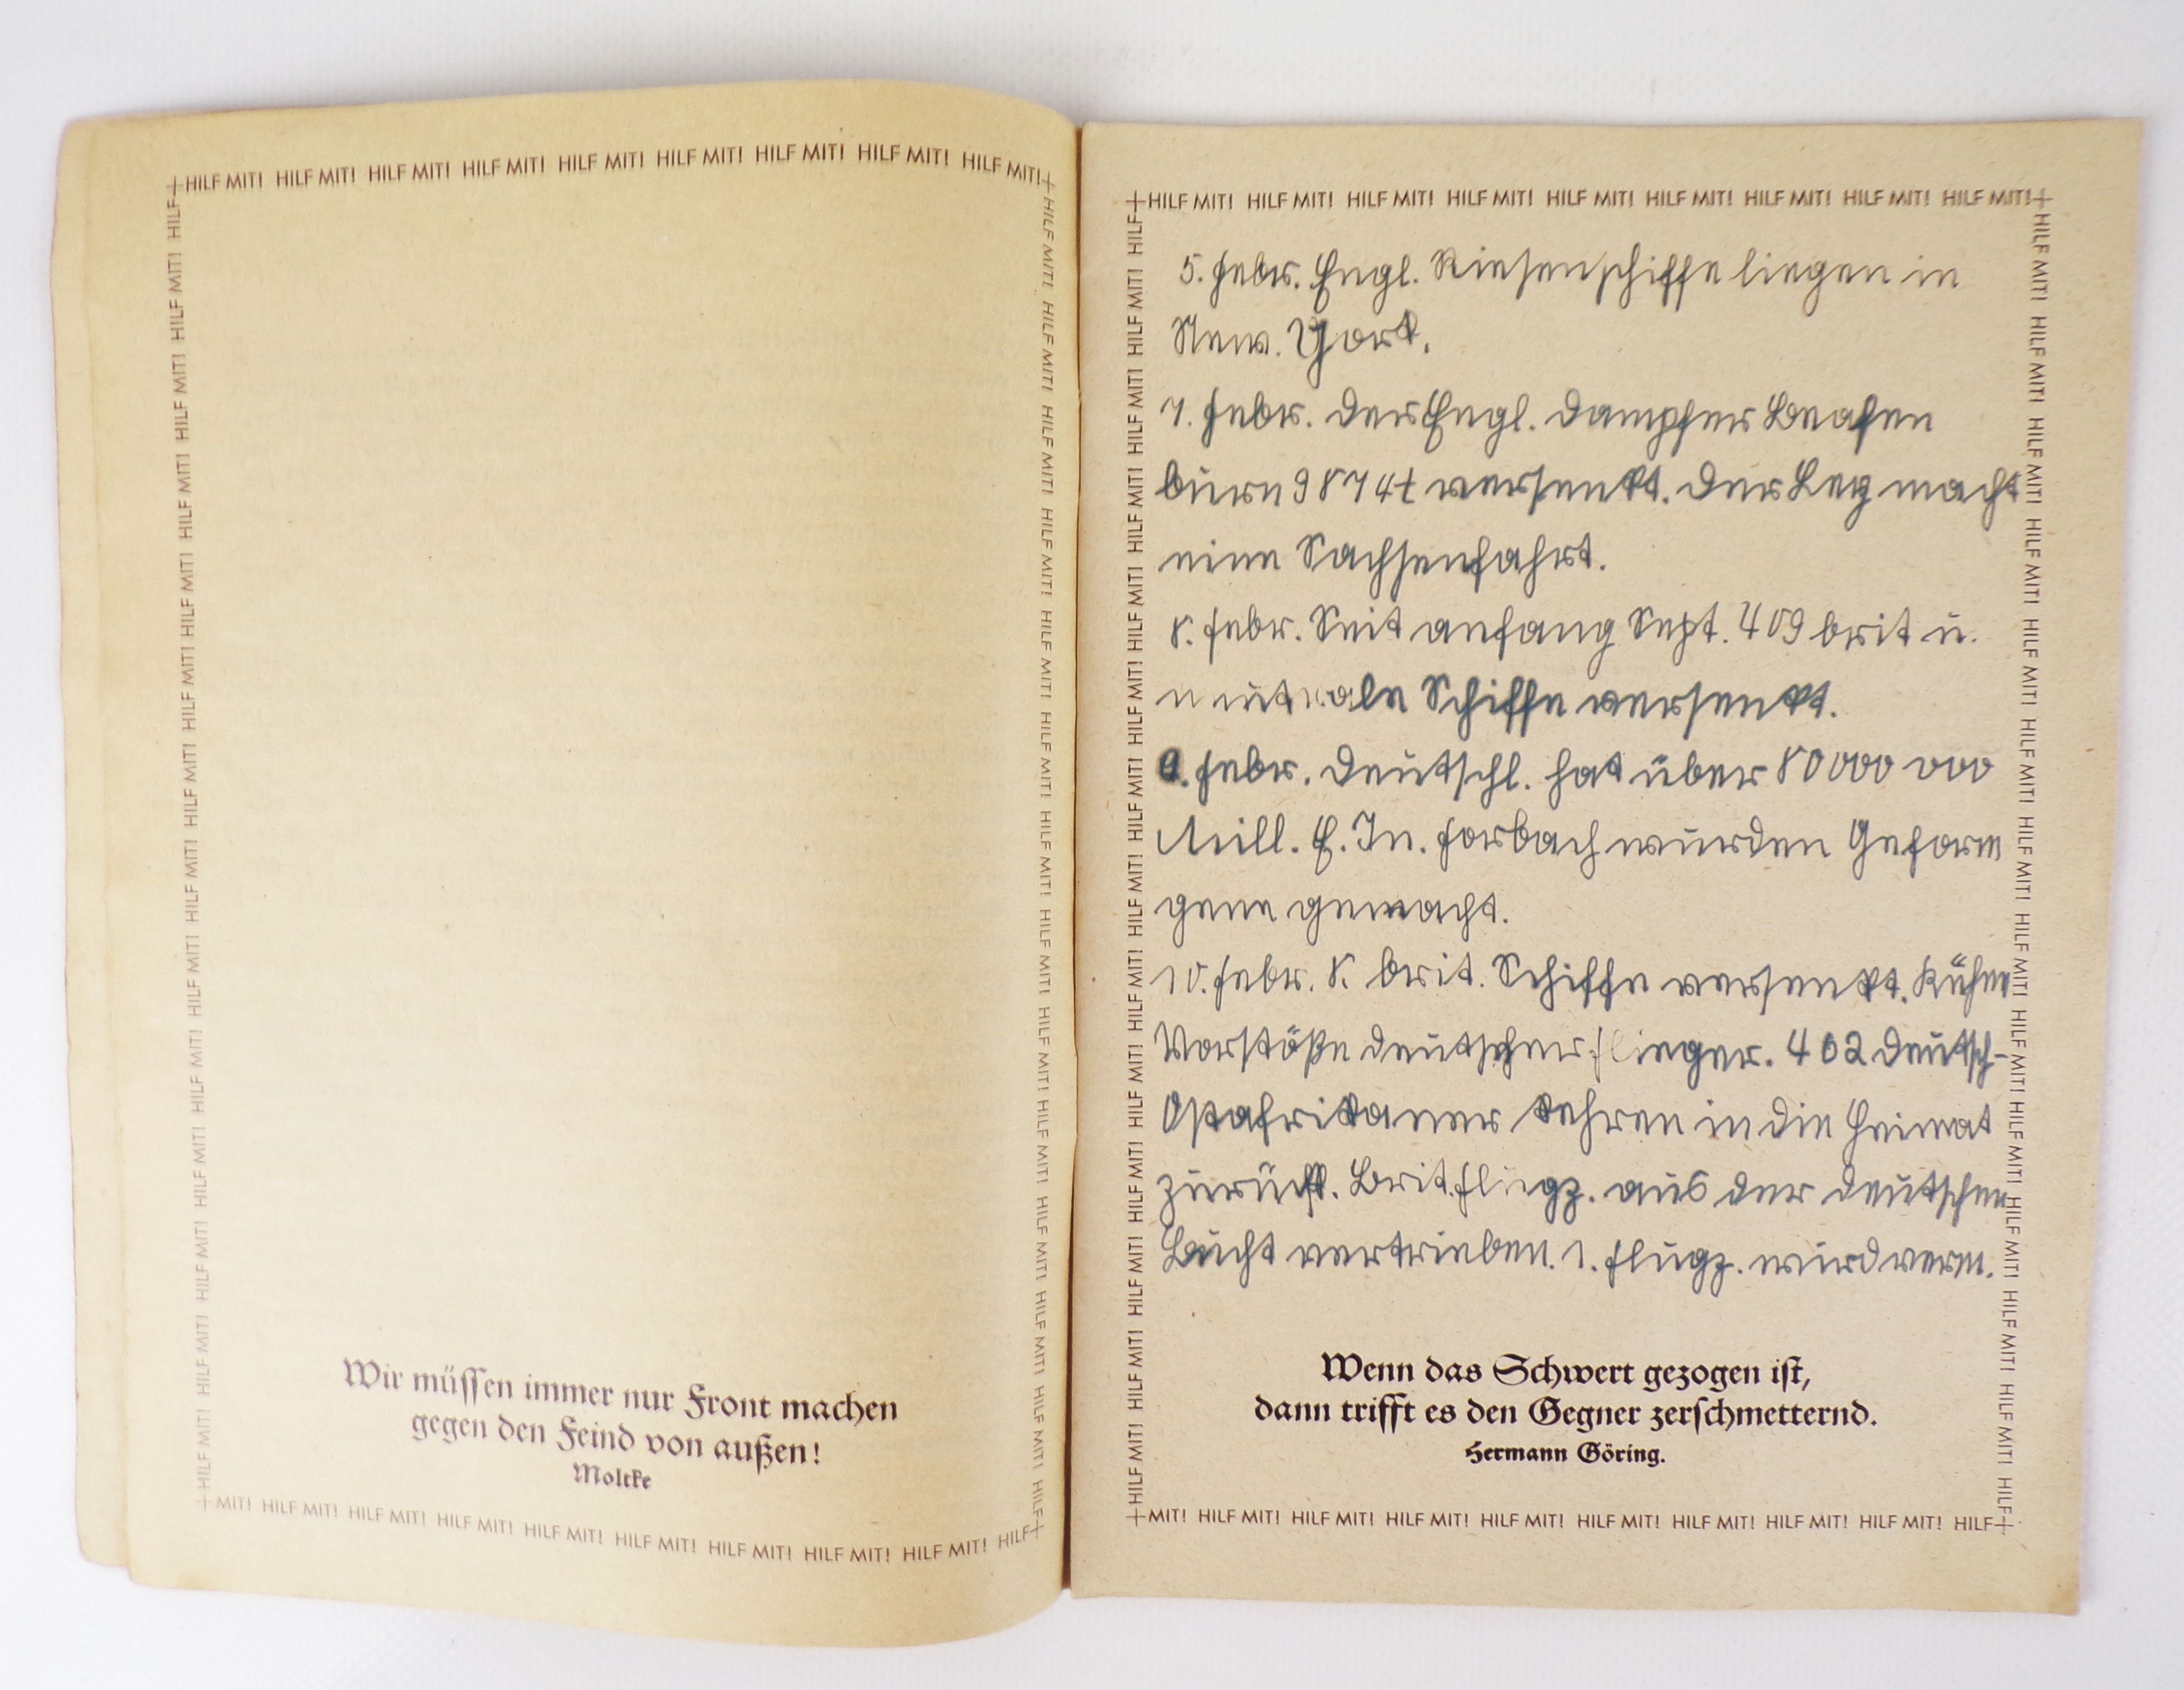 HILF MIT! HILF MIT! HILF MIT! HILF MIT! HILF MIT! HILF MIT! HILF MIT! HILF MIT! HILF MIT!
Wir müssen immer nur Front machen
gegen den Feind von außen!
Moltke
MIT! HILF MIT! HILF MIT! HILF MIT! HILF MIT! HILF MIT! HILF MIT! HILF MIT! HILF MIT! HILF
HILF MIT! HILF MIT! HILF MIT! HILF MIT! HILF MIT! HILF MIT! HILF MIT! HILF MIT! HILF MIT!
5. Febr. Engl. Riesenschiffe liegen in
New. York.
7. Febr. Der Engl. Dampfer Beafen
burn 9874t versenkt. Der Ley macht
eine Sachsenfahrt.
8. Febr. Seit anfang Sept. 409 brit u.
neutrale Schiffe versenkt.
9. Febr. Deutschl. hat über 80000 000
Mill. E. In. Forbach wurden Gefarn
gene gemacht.
10. Febr. 8. brit. Schiffe versenkt. Kühne
Vorstöße deutscher Flieger. 402 Deutsch-
Ostafrikaner kehren in die Heimat
zurück. Brit. Fliegz. aus der deutschen
Bucht vertrieben. 1. Flugz. wird verm.
Wenn das Schwert gezogen ist,
dann trifft es den Gegner zerschmetternd.
Hermann Göring.
MIT! HILF MIT! HILF MIT! HILF MIT! HILF MIT! HILF MIT! HILF MIT! HILF MIT! HILF MIT! HILF